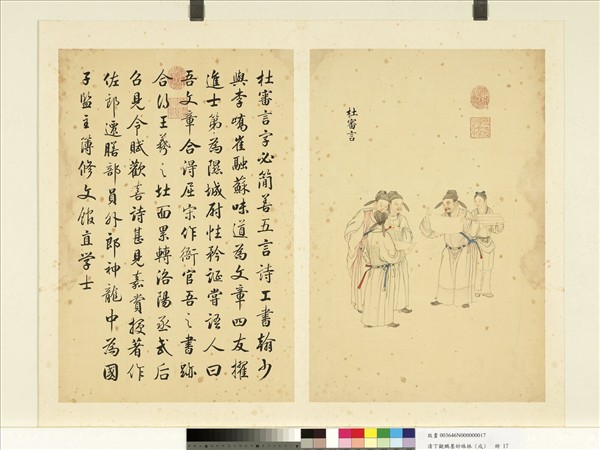 杜審言字必簡善五言詩工書翰少
與李嶠崔融蘇味道為文章四友擢
進士第為隰城尉性矜誕嘗語人曰
吾文章合得屈宋作衙官吾之書跡
合得王羲之北面累轉洛陽丞武后
召見令賦歡喜詩甚見嘉賞授著作
佐郎遷膳部員外郎神龍中為國
子監主簿修文館直学士
杜審言
故畫 003646N000000017
清丁觀鵬墨妙珠林（戌） 冊 17